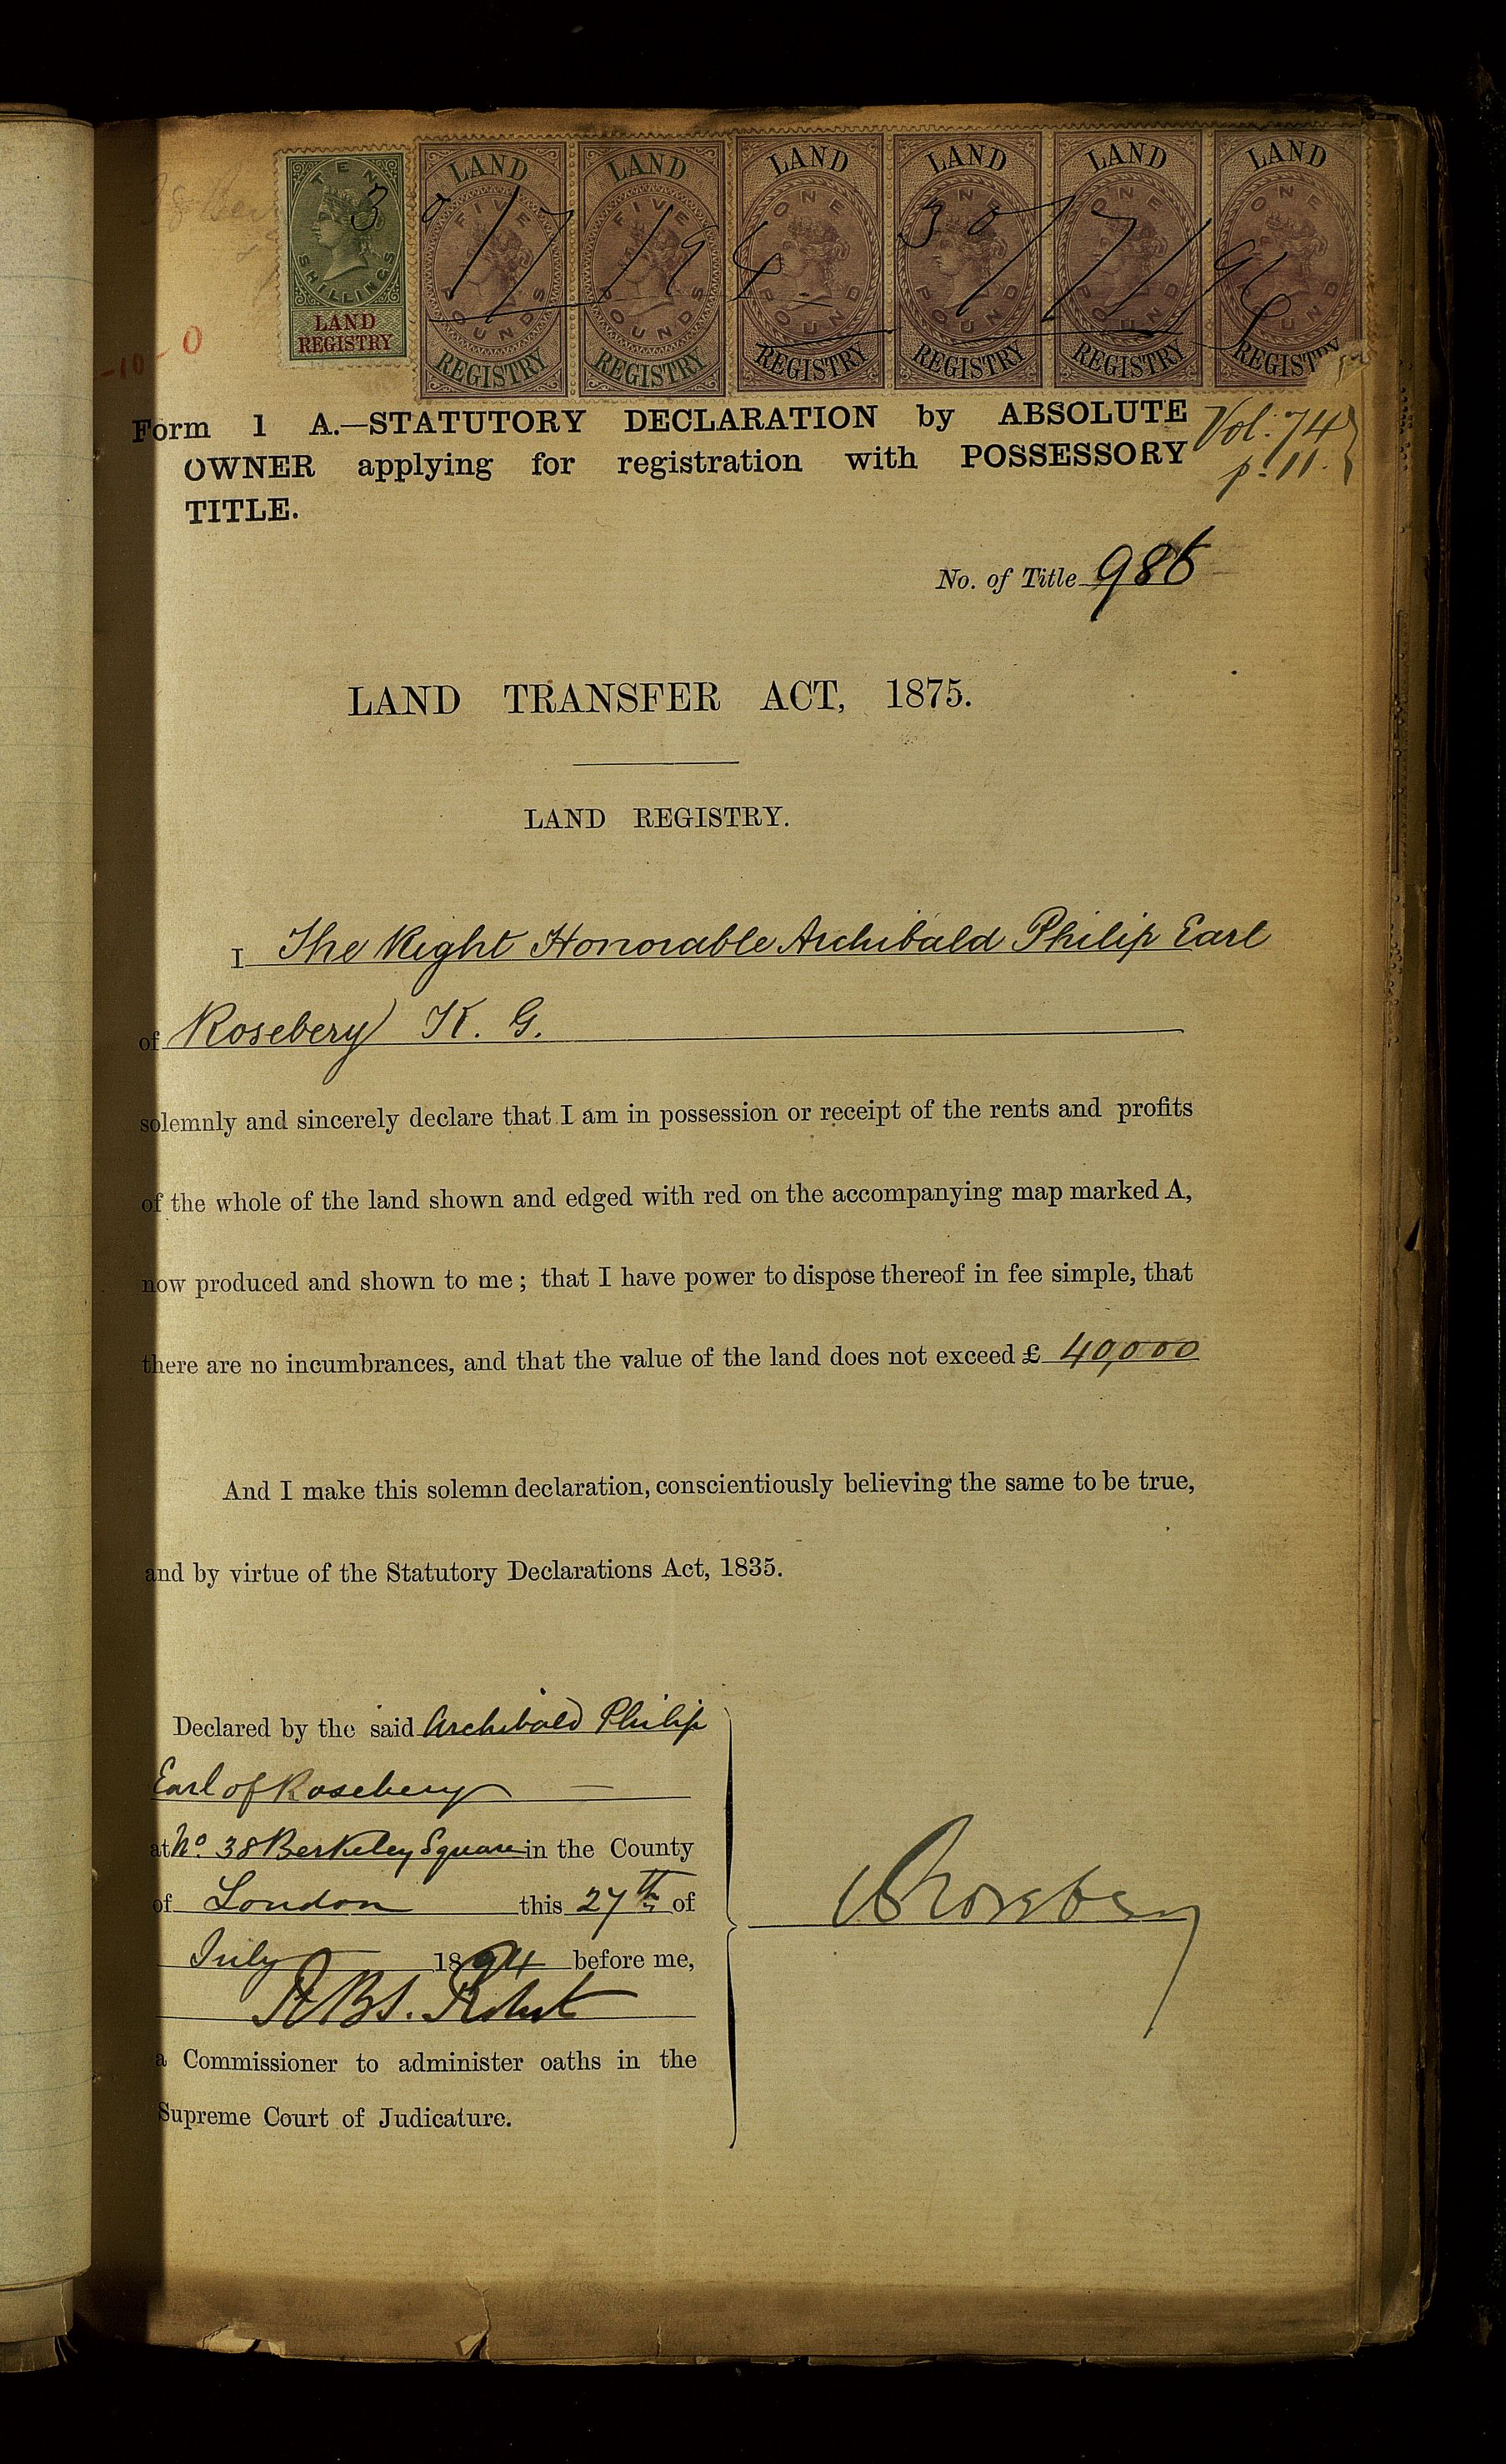 TEN SHILLINGS LAND REGISTRY
LAND FIVE POUNDS REGISTRY
LAND FIVE POUNDS REGISTRY
LAND ONE POUND REGISTRY
LAND ONE POUND REGISTRY
LAND ONE POUND REGISTRY
LAND ONE POUND REGISTRY
30/7/94 30/7/94
-10-0
Form 1 A.—STATUTORY DECLARATION by ABSOLUTE
OWNER applying for registration with POSSESSORY
TITLE.
Vol. 74
p. 11.
No. of Title 986
LAND TRANSFER ACT, 1875.
LAND REGISTRY.
I The Right Honorable Archibald Philip Earl
of Rosebery K. G.
solemnly and sincerely declare that I am in possession or receipt of the rents and profits
of the whole of the land shown and edged with red on the accompanying map marked A,
now produced and shown to me; that I have power to dispose thereof in fee simple, that
there are no incumbrances, and that the value of the land does not exceed £ 40,000
And I make this solemn declaration, conscientiously believing the same to be true,
and by virtue of the Statutory Declarations Act, 1835.
Declared by the said Archibald Philip
Earl of Rosebery
at No. 38 Berkeley Square in the County
of London this 27th of
July 1894 before me,
a Commissioner to administer oaths in the
Supreme Court of Judicature.
Rosebery